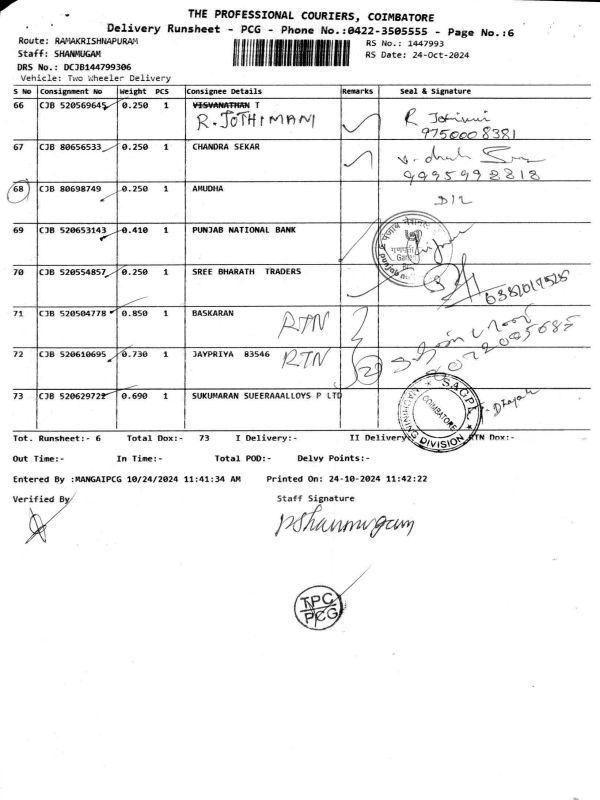 THE PROFESSIONAL COURIERS, COIMBATORE
Delivery Runsheet - PCG - Phone No.:0422-3505555 - Page No.:6
Route: RAMAKRISHNAPURAM
RS No.: 1447993
Staff: SHANMUGAM
RS Date: 24-Oct-2024
DRS No.: DCJB144799306
Vehicle: Two Wheeler Delivery
S No Consignment No Weight PCS Consignee Details Remarks Seal & Signature
66 CJB 520569645 0.250 1 VISVANATHAN T
R. JOTHIMANI
R Jothimani
9750008381
67 CJB 80656533 0.250 1 CHANDRA SEKAR
9995992818
68 CJB 80698749 0.250 1 AMUDHA
D/L
69 CJB 520653143 0.410 1 PUNJAB NATIONAL BANK
70 CJB 520554857 0.250 1 SREE BHARATH TRADERS
71 CJB 520504778 0.850 1 BASKARAN
RTN
72 CJB 520610695 0.730 1 JAYPRIYA 83546 RTN
73 CJB 520629722 0.690 1 SUKUMARAN SUEERAAALLOYS P LTD
SAGPL
COIMBATORE
MACHINING DIVISION
Tot. Runsheet:- 6 Total Dox:- 73 I Delivery:- II Delivery RTN Dox:-
Out Time:- In Time:- Total POD:- Delvy Points:-
Entered By :MANGAIPCG 10/24/2024 11:41:34 AM Printed On: 24-10-2024 11:42:22
Verified By Staff Signature
PShanmugam
TPC
PCG